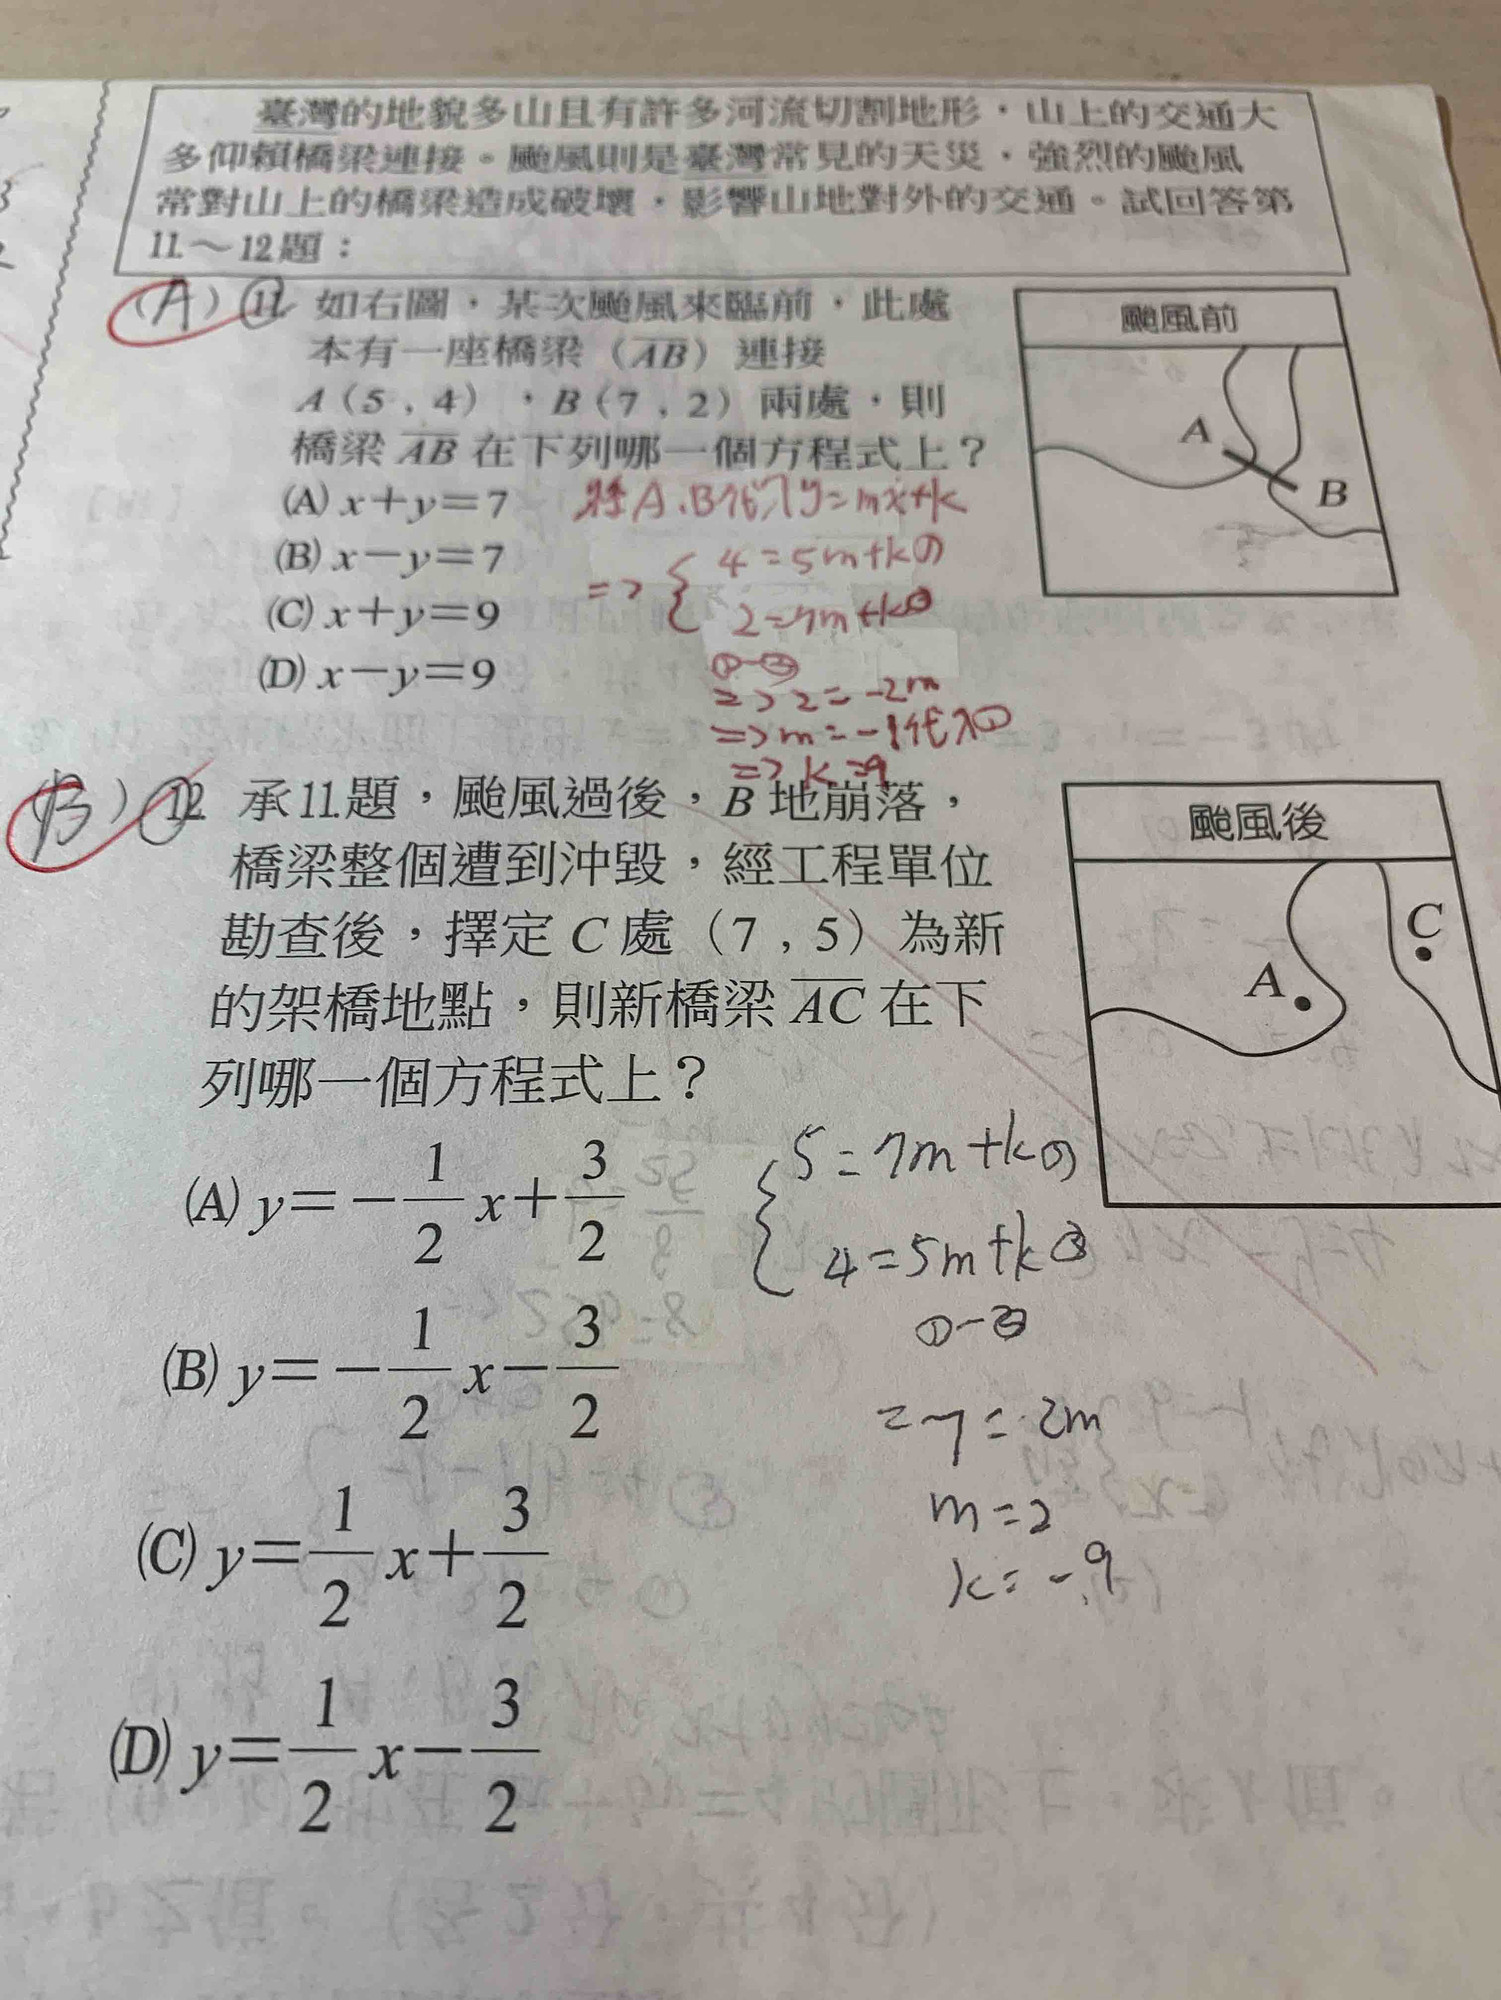 臺灣的地貌多山且有許多河流切割地形，山上的交通大
多仰賴橋梁連接。颱風則是臺灣常見的天災，強烈的颱風
常對山上的橋梁造成破壞，影響山地對外的交通。試回答第
11.～12.題：
(A) 11. 如右圖，某次颱風來臨前，此處
本有一座橋梁（AB）連接
A（5，4），B（7，2）兩處，則
橋梁 AB 在下列哪一個方程式上？
(A) x＋y＝7
(B) x－y＝7
(C) x＋y＝9
(D) x－y＝9
將A、B代入y=mx+k
=> { 4=5m+k①
2=7m+k②
①-②
=> 2=-2m
=> m=-1代入①
=> k=9
颱風前
A
B
(B) 12. 承11.題，颱風過後，B 地崩落，
橋梁整個遭到沖毀，經工程單位
勘查後，擇定 C 處（7，5）為新
的架橋地點，則新橋梁 AC 在下
列哪一個方程式上？
(A) y＝－1/2 x＋3/2
(B) y＝－1/2 x－3/2
(C) y＝1/2 x＋3/2
(D) y＝1/2 x－3/2
颱風後
C
A
{ 5=7m+k①
4=5m+k②
①-②
=7=2m
m=2
k=-9